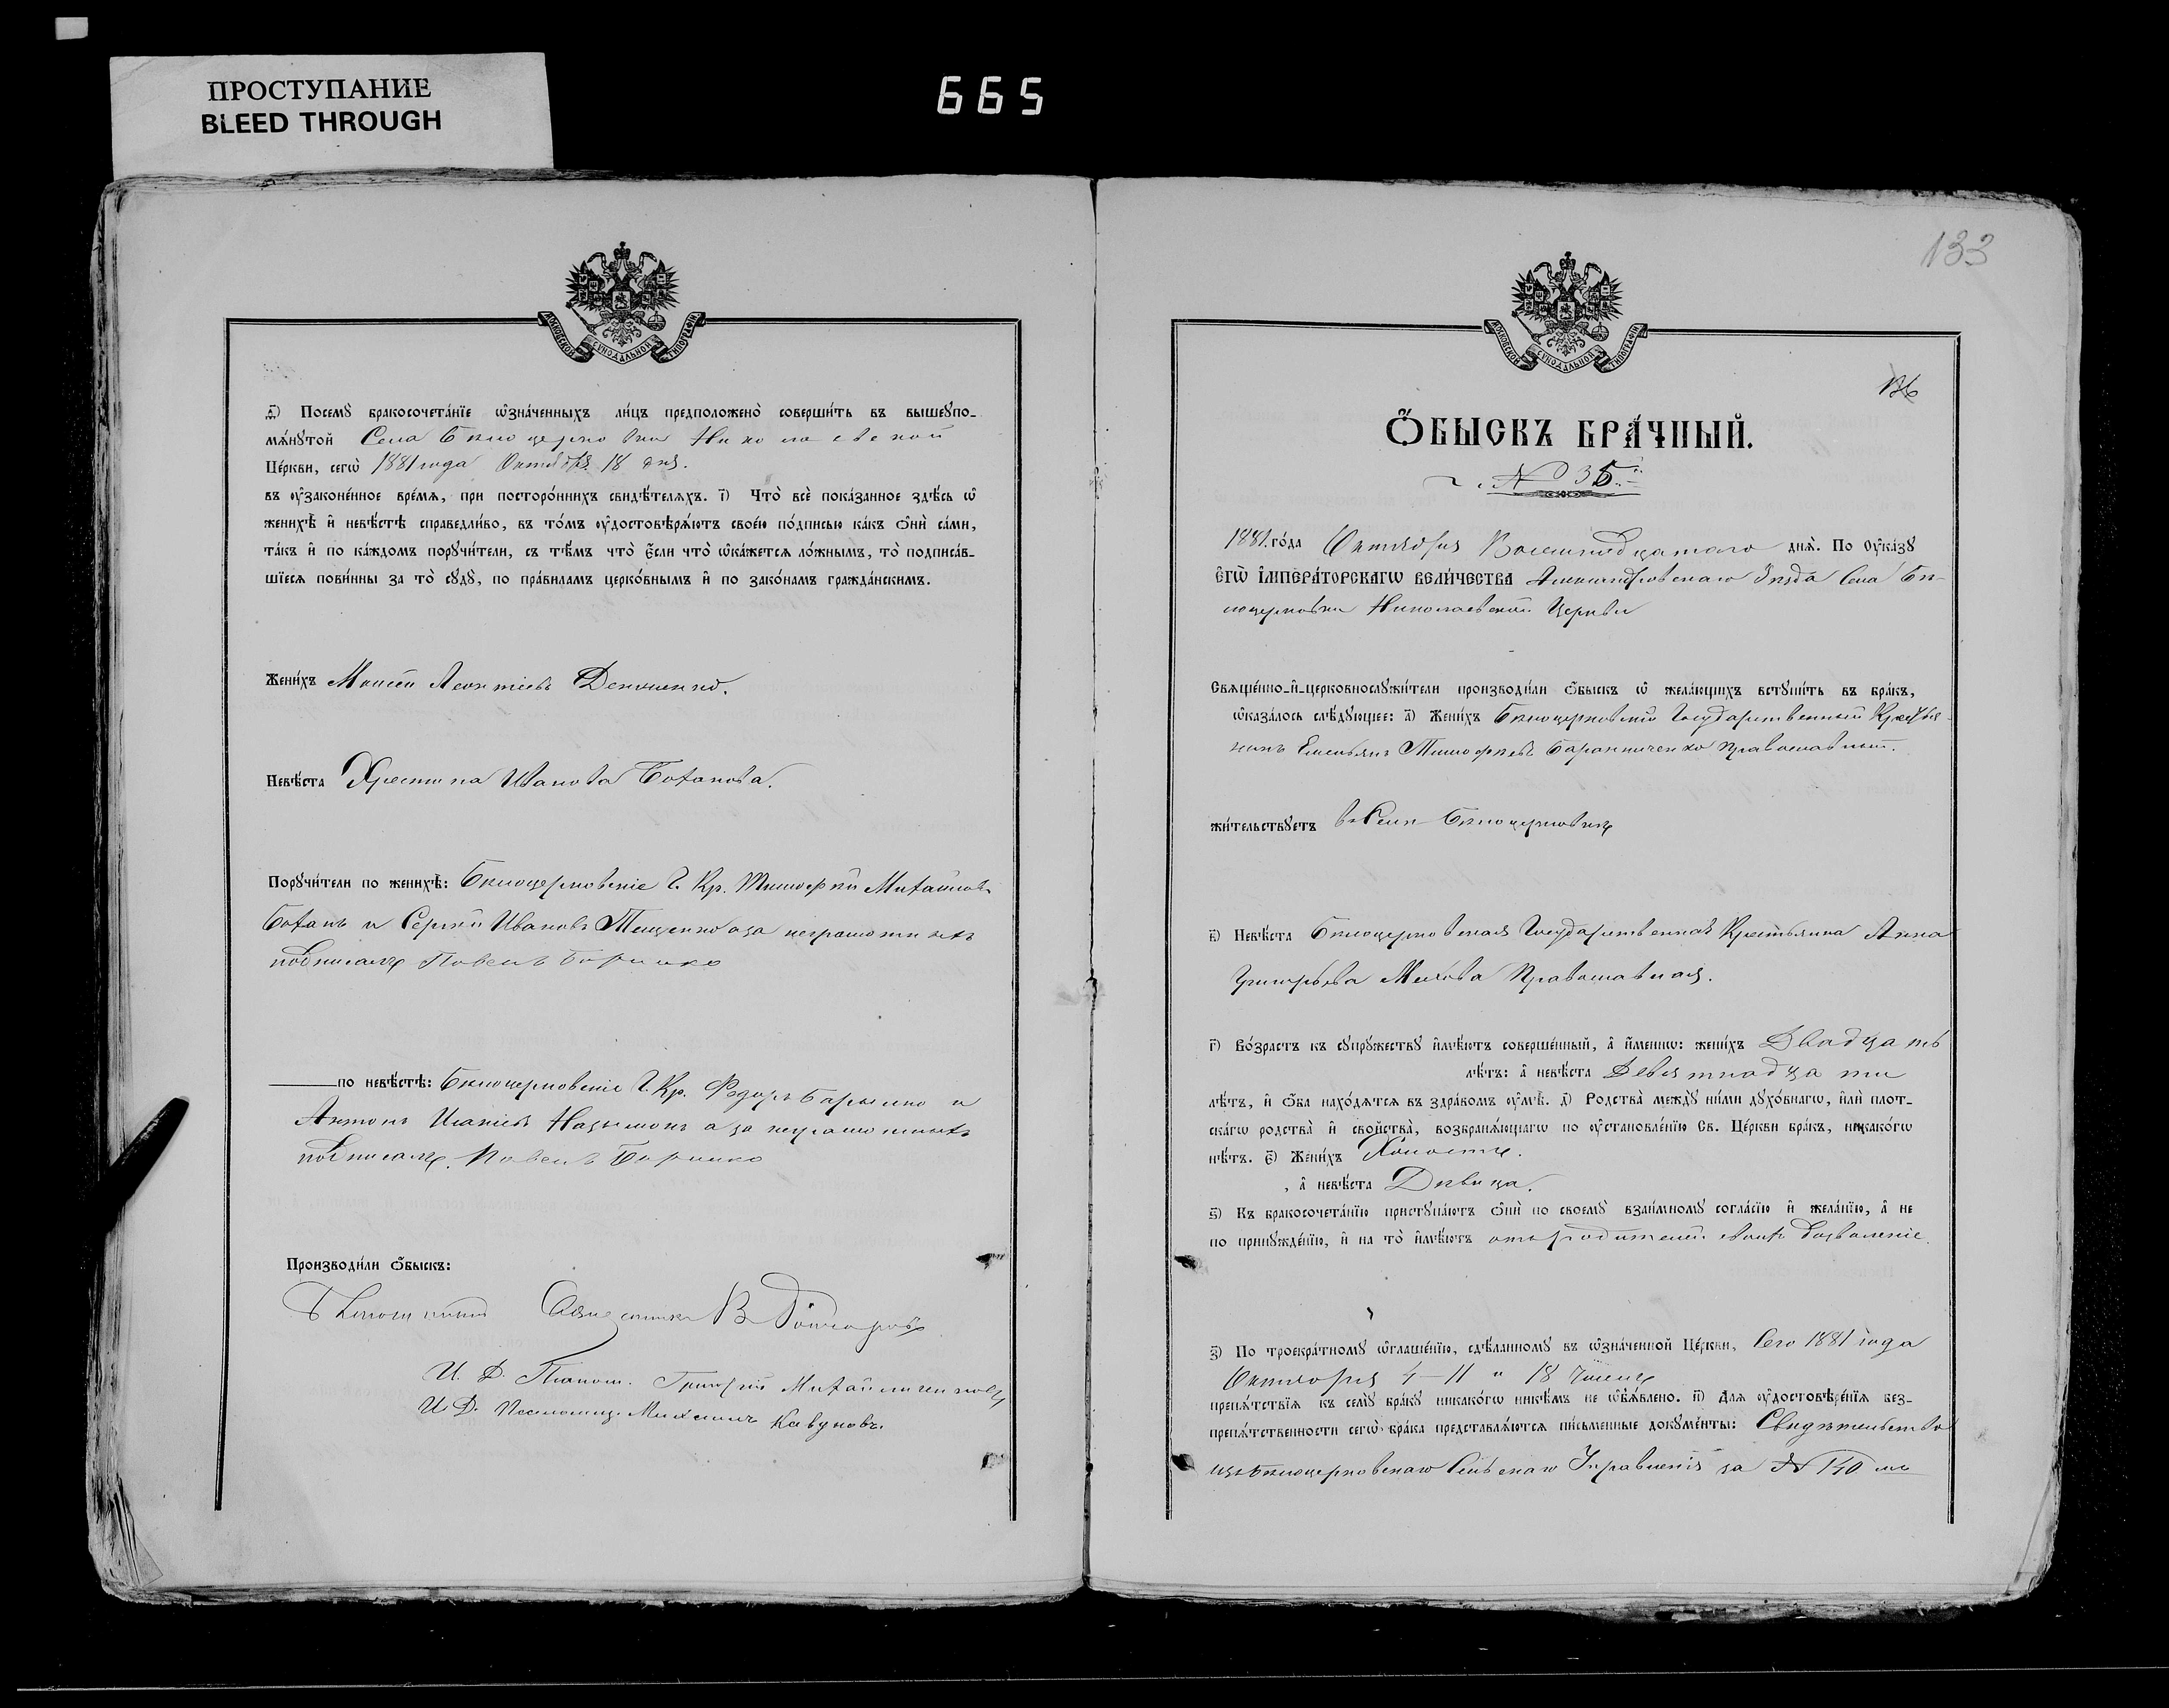 ПРОСТУПАНИЕ
BLEED THROUGH
665
МОСКОВСКОЙ СѴНОДАЛЬНОЙ ТИПОГРАФІИ
Ѳ҃) Посемꙋ̀ бракосочета́нїе ѡ҆зна́ченныхъ ли́цъ предположено̀ соверши́ть въ вышеꙋпо-
мѧ́нꙋтой Села Бѣлоцерковки Николаевской
Це́ркви, сегѡ̀ 1881 года Октября 18 дня.
въ ᲂу҆законе́нное вре́мѧ, при посторо́ннихъ свидѣ́телѧхъ. І҃) Что̀ всѐ пока́занное здѣ́сь ѡ҆
женихѣ̀ и҆ невѣ́стѣ справедли́во, въ то́мъ ᲂу҆достовѣрѧ́ютъ свое́ю по́дписью ка́къ ѻ҆нѝ са́ми,
та́къ и҆ по ка́ждомъ порꙋчи́тели, съ тѣ́мъ что̀ є҆́сли что̀ ѡ҆ка́жетсѧ ло́жнымъ, то̀ подписа́в-
шїесѧ пови́нны за то̀ сꙋдꙋ̀, по пра́виламъ церко́внымъ и҆ по зако́намъ гражда́нскимъ.
Жени́хъ Моисей Леонтіевъ Денисенко.
Невѣ́ста Христина Иванова Боханова.
Порꙋчи́тели по женихѣ̀: Бѣлоцерковскіе Г. Кр. Тимофей Михайловъ
Боханъ и Сергѣй Ивановъ Тещенко а за неграмотныхъ
подписалъ Павелъ Баришко
по невѣ́стѣ: Бѣлоцерковскіе Г. Кр. Федоръ Барышко и
Антонъ а за неграмотныхъ
подписалъ Павелъ Баришко
Производи́ли ѻ҆́быскъ:
Священникъ В.
И. Д. Псалом. Григорій Михайличенковъ
И. Д. Псаломщ. Михаилъ Кавуновъ.
133
136
МОСКОВСКОЙ СѴНОДАЛЬНОЙ ТИПОГРАФІИ
Ѻ҆́БЫСКЪ БРА́ЧНЫЙ.
№ 35
1881. го́да Октября Восемнадцатого днѧ̀. По ᲂу҆ка́зꙋ
є҆гѡ̀ і҆мпера́торскагѡ вели́чества Александровскаго Уѣзда Села Бѣ-
лоцерковки Николаевской Церкви
Свѧще́нно-и҆-церковнослꙋжи́тели производи́ли ѻ҆́быскъ ѡ҆ жела́ющихъ встꙋпи́ть въ бра́къ,
ѡ҆каза́лось слѣ́дꙋющее: А҃) Жени́хъ Бѣлоцерковскій Государственный Крестья-
нинъ Емельянъ Тимофѣевъ Баранниченко Православный.
жи́тельствꙋетъ въ Селѣ Бѣлоцерковкѣ
В҃) Невѣ́ста Бѣлоцерковская Государственная Крестьянка Анна
Григорьева Мехова Православная.
Г҃) Во́зрастъ къ сꙋпрꙋжествꙋ и҆мѣ́ютъ соверше́нный, а҆ и҆́меннѡ: жени́хъ Двадцать
лѣ́тъ: а҆ невѣ́ста Девятнадцати
лѣ́тъ, и҆ ѻ҆́ба нахо́дѧтсѧ въ здра́вомъ ᲂу҆мѣ̀. Д҃) Родства̀ междꙋ̀ ни́ми дꙋхо́внагѡ, и҆лѝ пло́т-
скагѡ родства̀ и҆ сво́йства̀, возбранѧ́ющагѡ по ᲂу҆становле́нїю Св. Це́ркви бра́къ, никако́гѡ
нѣ́тъ. Є҃) Жени́хъ Холостъ.
, а҆ невѣ́ста Дѣвица.
Ѕ҃) Къ бракосочета́нїю пристꙋпа́ютъ ѻ҆нѝ по своемꙋ̀ взаи́мномꙋ согла́сїю и҆ жела́нїю, а҆ не
по принꙋжде́нїю, и҆ на то̀ и҆мѣ́ютъ отъ родителей своихъ дозволеніе.
З҃) По троекра́тномꙋ ѡ҆глаше́нїю, сдѣ́ланномꙋ въ ѡ҆зна́ченной Це́ркви, Сего 1881 года
Октября 4 - 11 и 18 числъ
препѧ́тствїѧ къ семꙋ̀ бра́кꙋ никако́гѡ никѣ́мъ не ѡ҆б̾ѧ́влено. И҃) Для ᲂу҆достовѣре́нїѧ без-
препѧ́тственности сегѡ̀ бра́ка представлѧ́ютсѧ пи́сьменные докꙋме́нты: Свидѣтельство
изъ Бѣлоцерковскаго Сельскаго Управленія за № 140 мъ